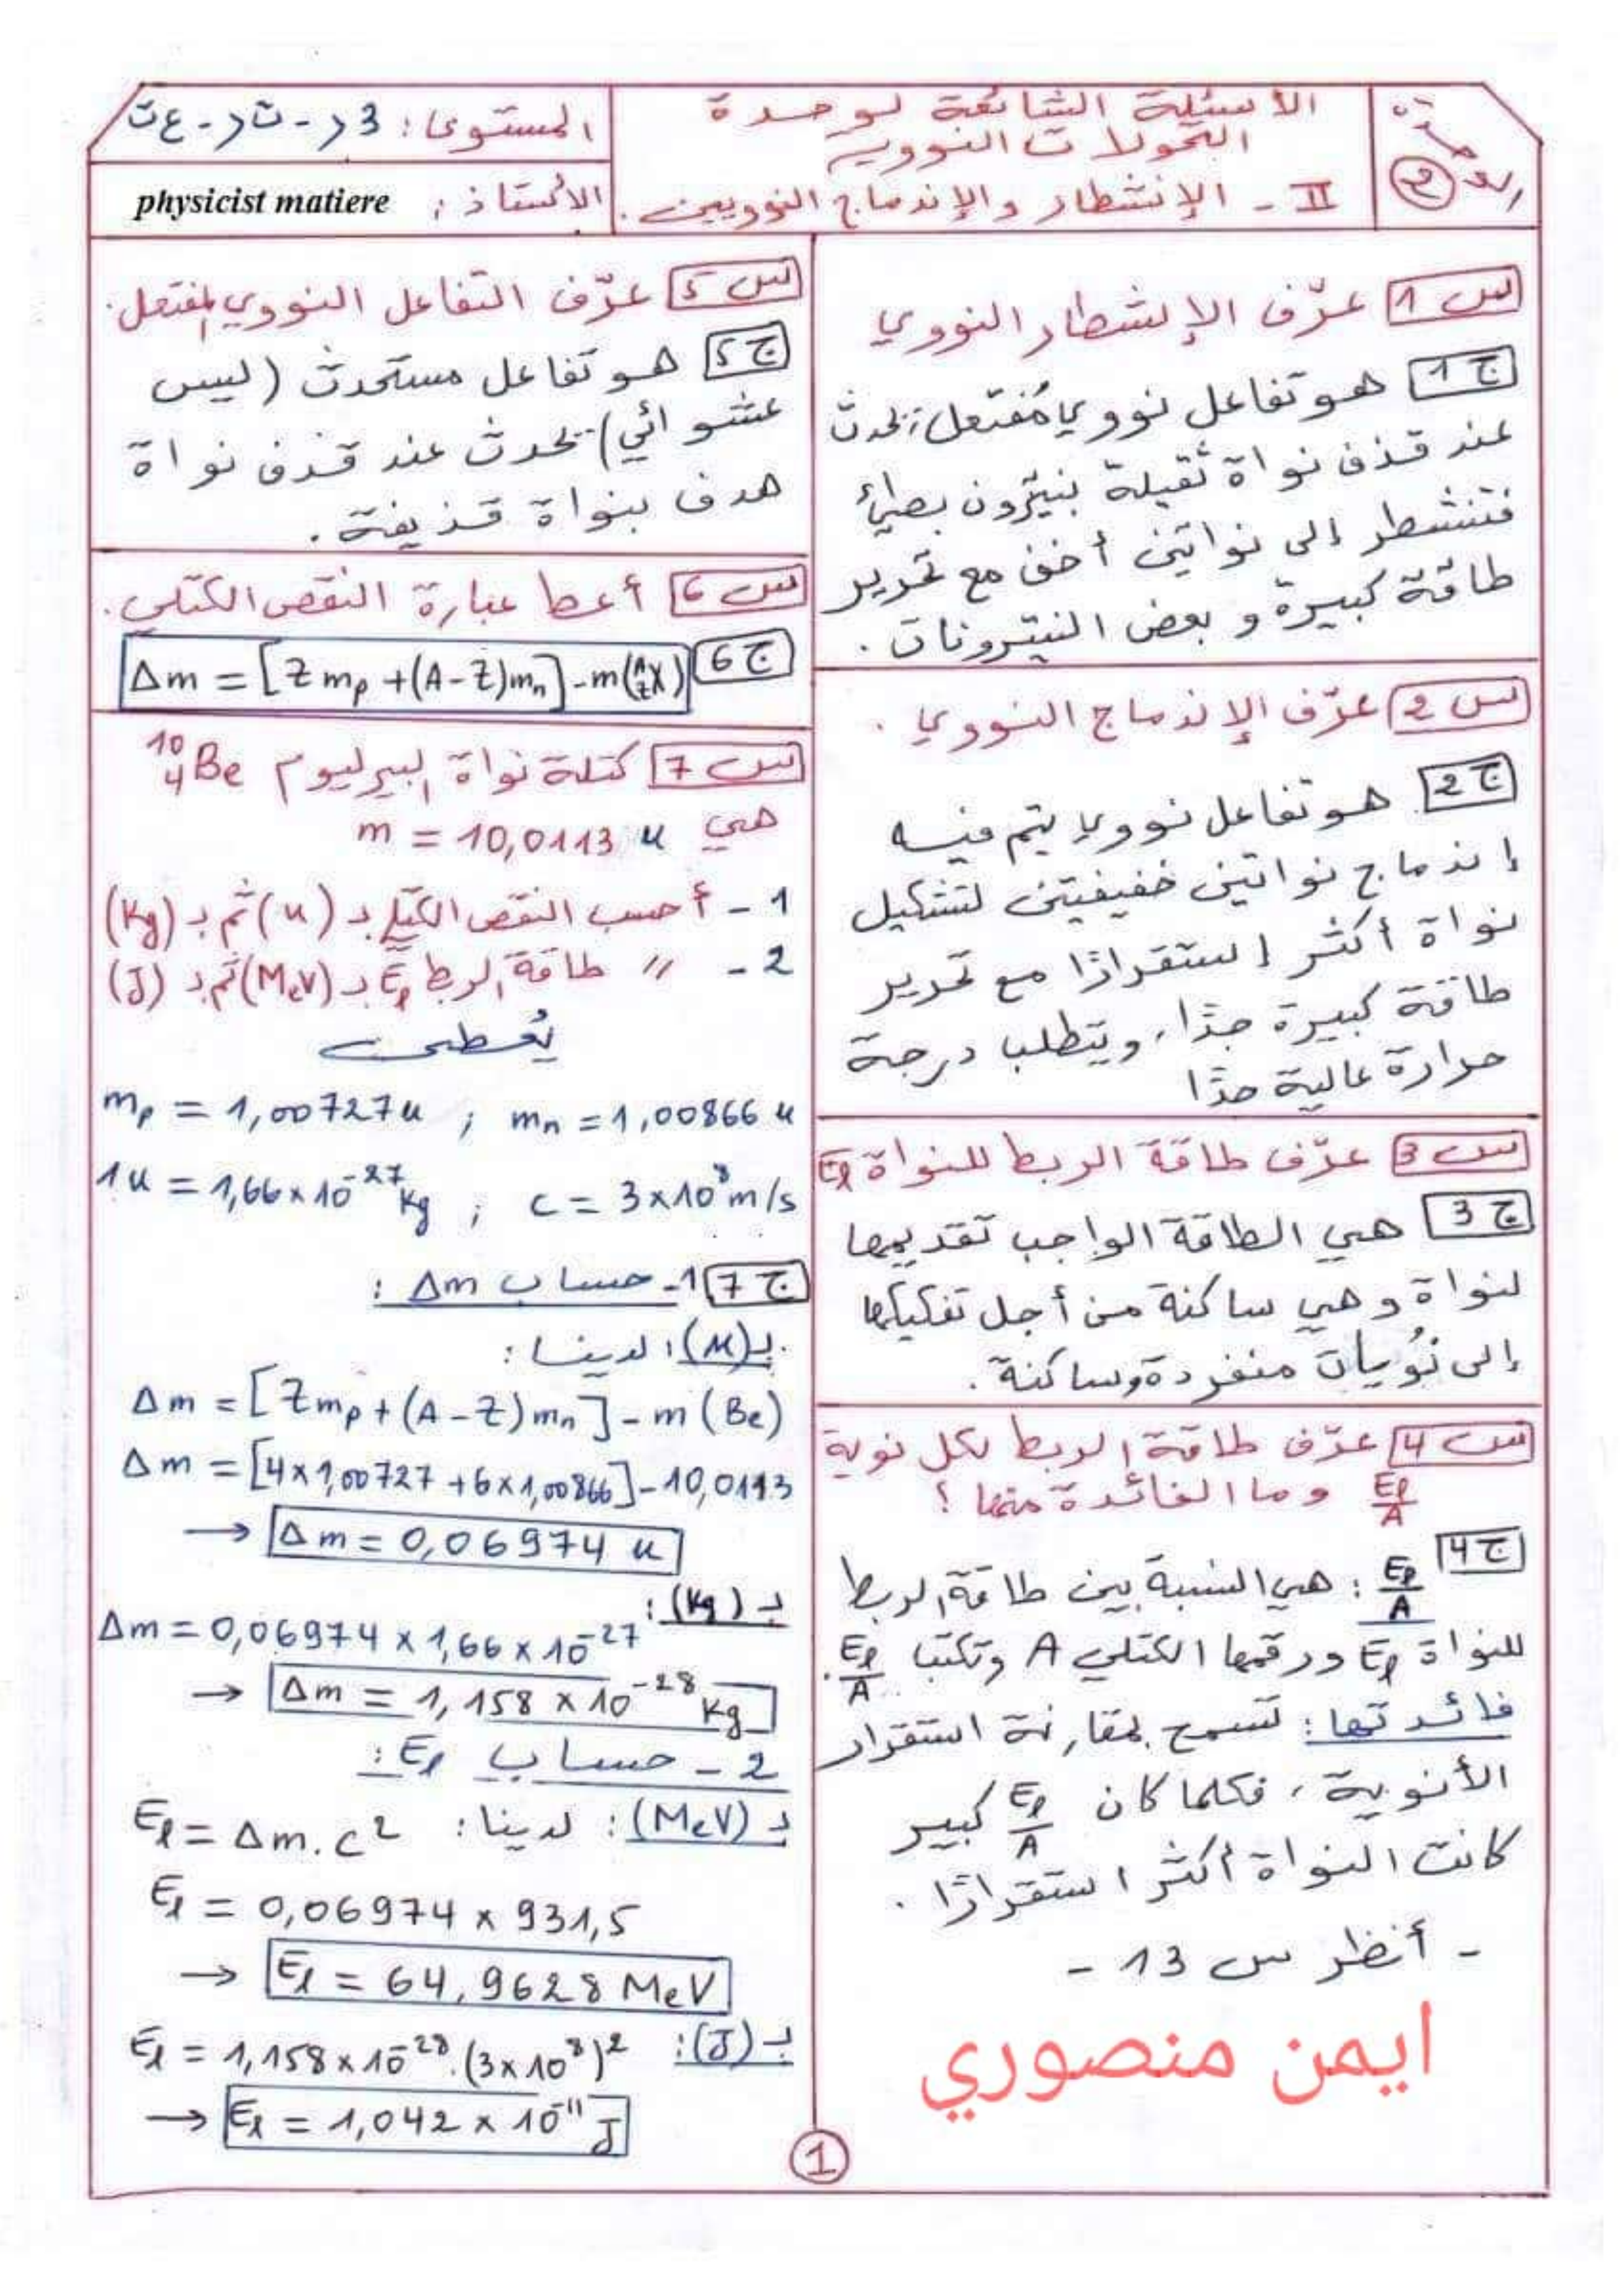 الأسئلة الشائعة لوحدة
التحولات النووية
II - الإنشطار والإندماج النوويين.
2
المستوى: 3 ر - ت ر - ع ت
الأستاذ: physicist matiere
س1 عرّف الإنشطار النووي
ج1 هو تفاعل نووي مُفتعل؛ يحدث
عند قذف نواة ثقيلة بنيترون بطيء
فتنشطر إلى نواتين أخف مع تحرير
طاقة كبيرة و بعض النيترونات.
س2 عرّف الإندماج النووي.
ج2 هو تفاعل نووي يتم فيه
إندماج نواتين خفيفيتين لتشكيل
نواة أكثر استقرارًا مع تحرير
طاقة كبيرة جدًا، ويتطلب درجة
حرارة عالية جدًا
س3 عرّف طاقة الربط للنواة Eℓ
ج3 هي الطاقة الواجب تقديمها
لنواة و هي ساكنة من أجل تفكيكها
إلى نُويات منفردة وساكنة.
س4 عرّف طاقة الربط لكل نوية
Eℓ/A وما الفائدة منها؟
ج4 Eℓ/A : هي النسبة بين طاقة الربط
للنواة Eℓ ورقمها الكتلي A وتكتب Eℓ/A.
فائدتها: تسمح بمقارنة استقرار
الأنوية، فكلما كان Eℓ/A كبير
كانت النواة أكثر استقرارًا.
- أنظر س 13 -
ايمن منصوري
س5 عرّف التفاعل النووي المفتعل.
ج5 هو تفاعل مستحدث (ليس
عشوائي) يحدث عند قذف نواة
هدف بنواة قذيفة.
س6 أعط عبارة النقص الكتلي.
ج6 Δm = [Z mp + (A-Z)mn] - m(ᴬ_Z X)
س7 كتلة نواة البيرليوم ¹⁰₄Be
هي m = 10,0113 u
1 - أحسب النقص الكتلي بـ (u) ثم بـ (Kg)
2 - // طاقة الربط Eℓ بـ (MeV) ثم بـ (J)
يُعطى
mp = 1,00727u ; mn = 1,00866 u
1u = 1,66×10⁻²⁷ Kg ; c = 3×10⁸ m/s
ج7 1- حساب Δm :
بـ (u): لدينا:
Δm = [Zmp + (A-Z)mn] - m(Be)
Δm = [4×1,00727 + 6×1,00866] - 10,0113
→ Δm = 0,06974 u
بـ (Kg):
Δm = 0,06974 × 1,66 × 10⁻²⁷
→ Δm = 1,158 × 10⁻²⁸ Kg
2 - حساب Eℓ :
بـ (MeV): لدينا: Eℓ = Δm.c²
Eℓ = 0,06974 × 931,5
→ Eℓ = 64,9628 MeV
بـ (J): Eℓ = 1,158×10⁻²⁸.(3×10⁸)²
→ Eℓ = 1,042 × 10⁻¹¹ J
1